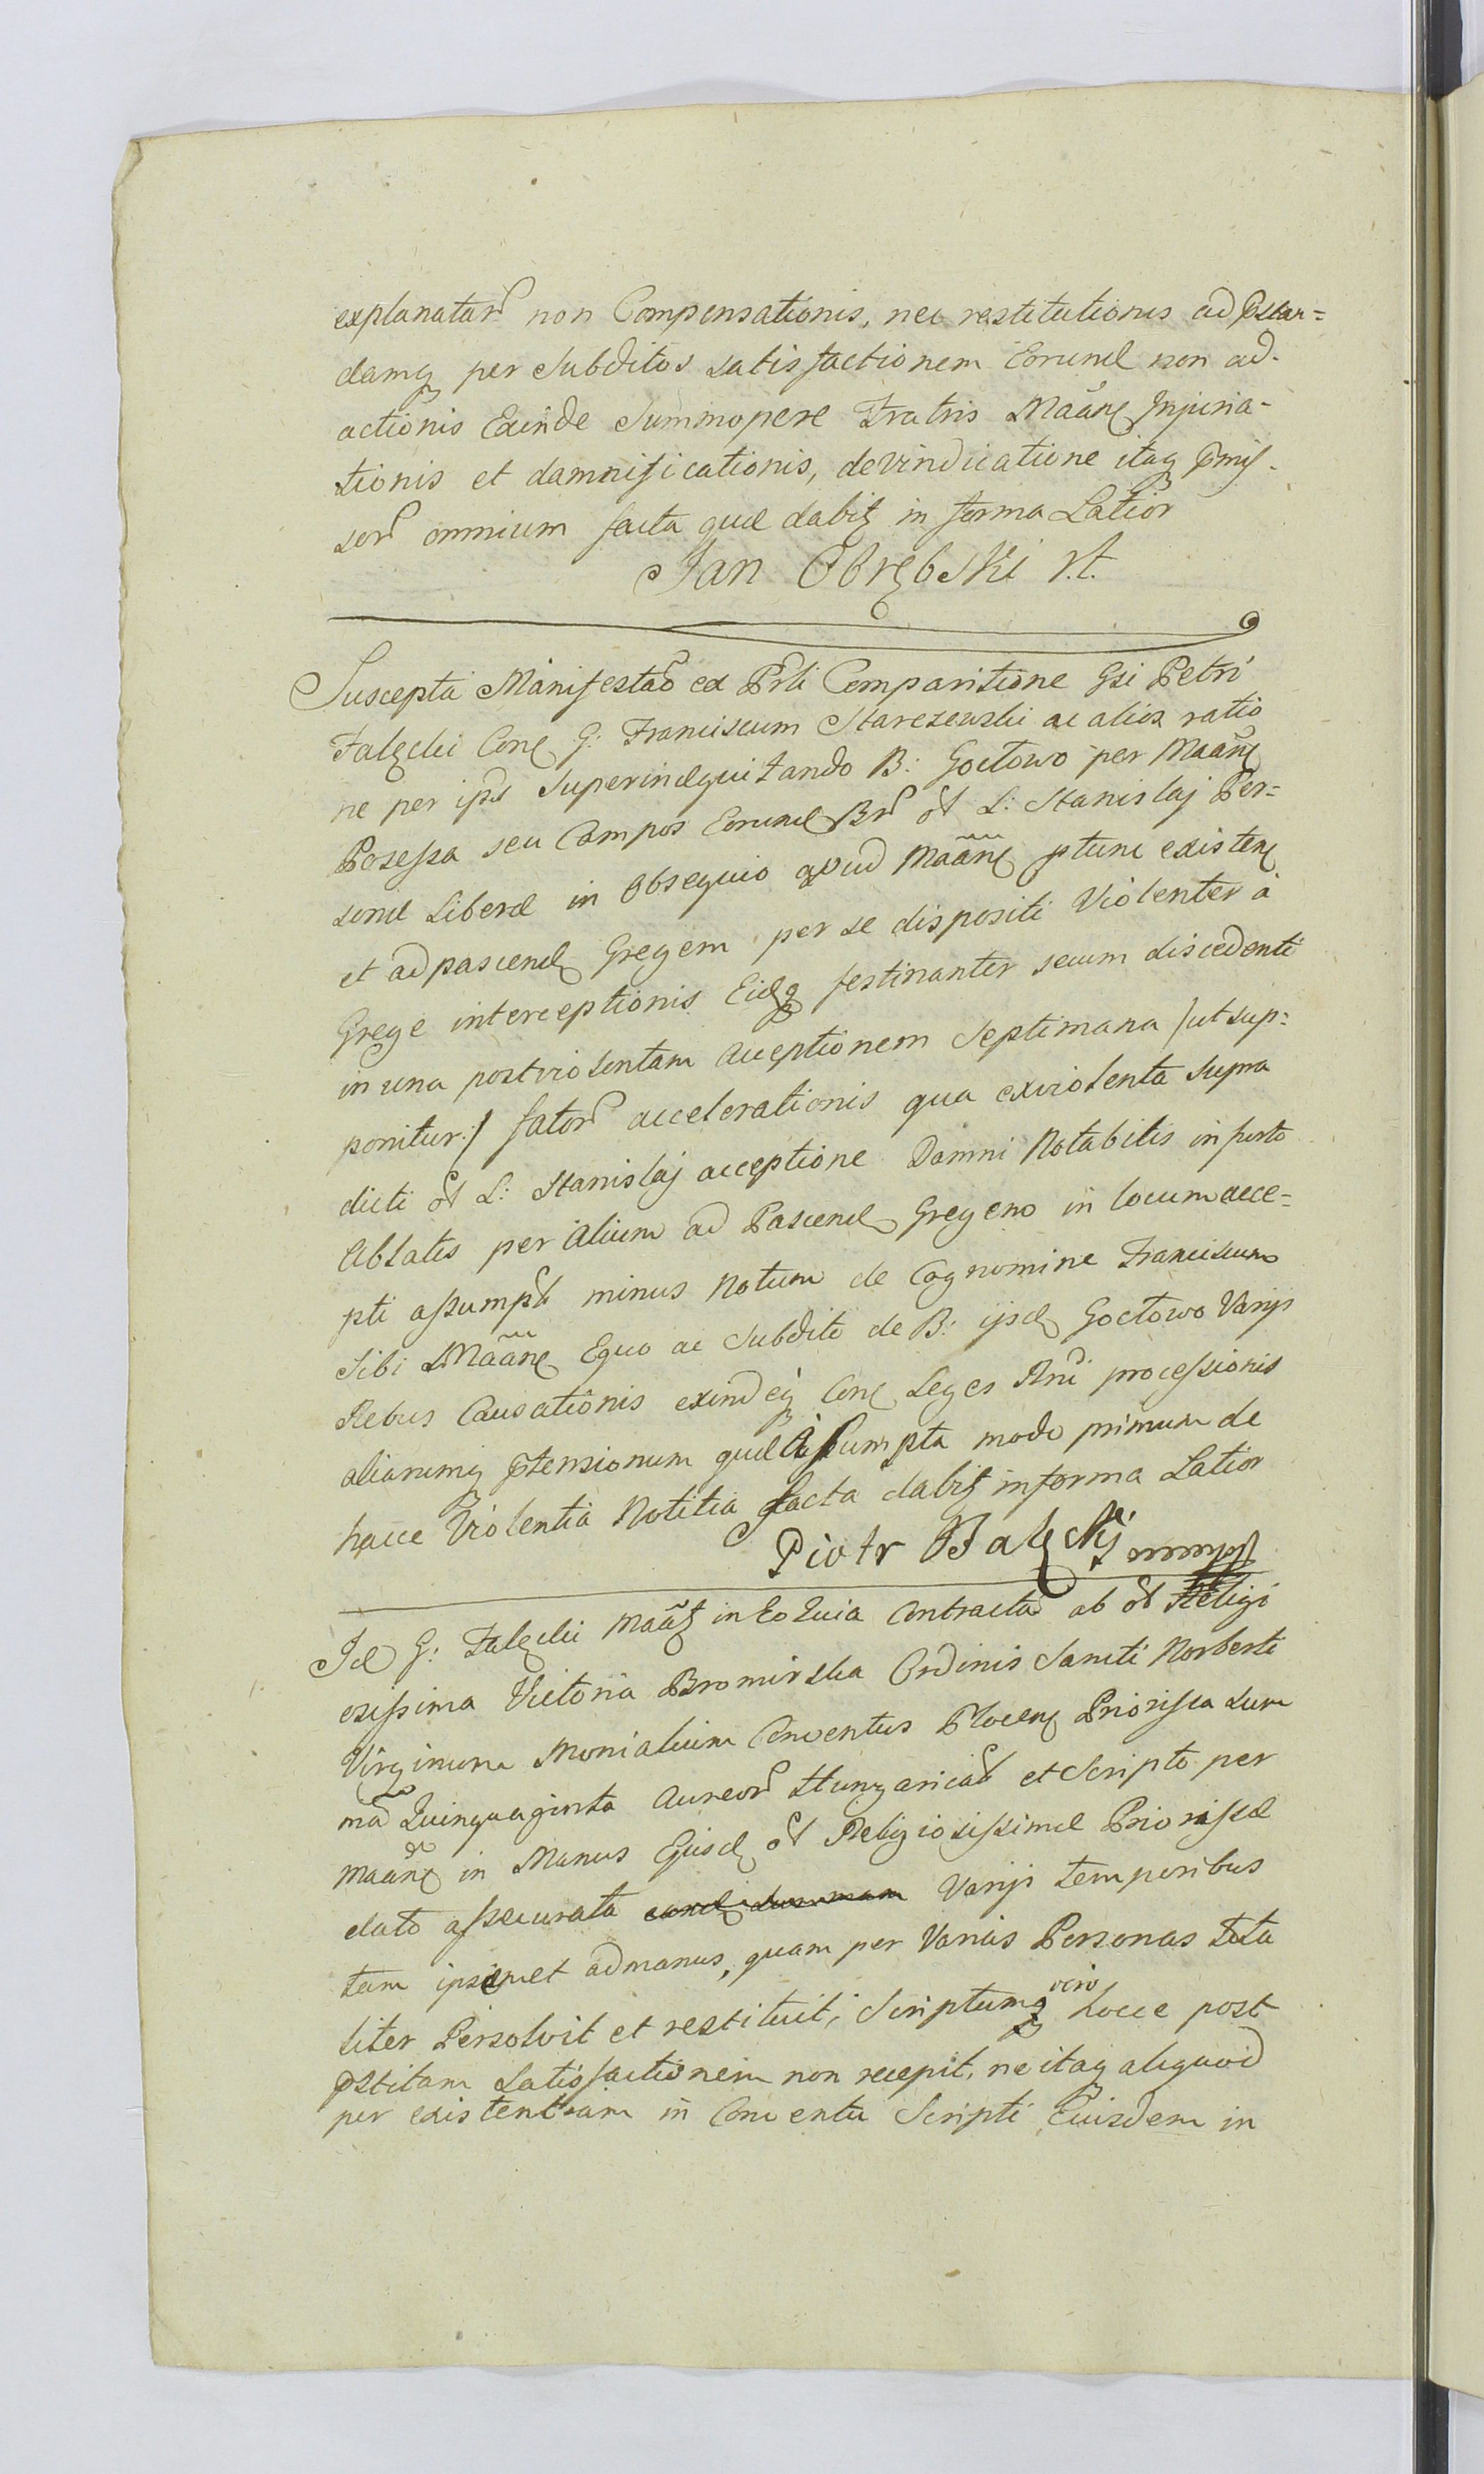 explanatar non Compensationis, nec restitutionis ad pstan=
damq per Subditos satisfactionem Eorund non ad-
actionis Exinde Summopere Fratris Maãn Injuria-
tionis et damnificationis, de vindicatione itaq pmis-
sor omnium facta qud dabit in forma Latior
Jan Obrębski
Suscepta Manifestao ex Prli Comparitione Gsi Petri
Falęcki Con G: Franciscum Starczewski ac alios ratio
ne per ips Superindequitando B: Goctowo per Maãn
Posessa seu Campos Eorund Br ol L: Stanislaj Per=
sond Liberd in Obsequio apud Maãn ptunc existen
et ad pascend Gregem per se dispositi Violenter à
Grege interceptionis Eidq festinanter secum discedenti
in una post violentam acceptionem Septimana /ut sup=
ponitur:/ fator accelerationis qua ex violenta supra
dicti ol L: Stanislaj acceptione Damni Notabilis in furto
Ablatis per alium ad Pascend Gregem in locum acce=
pti assumpt minus Notum de Cognomine Franciscum
Sibi Maãn Equo ac Subdito de B: ijsd Goctowo Varijs
Rebus Causationis exindeq Con Leges Rni processionis
aliarumq ptensionum qud Assumpta modo primum de
hacce Violentia Notitia facta dabit in forma Latior
Piotr Falęckj
Id G: Falęcki Maãt in Eo Quia Contracta ab ol Religi
osissima Victoria Bromirska Ordinis Sancti Norberti
Virginum Monialium Conventus Plocen Priorissa Sum
ma Quinquaginta Aureor Hungarical et Scripto per
Maãn in Manus Ejusd ol Religiosissimd Priorissd
dato assecurata eand summam Varijs temporibus
tam ipsimet ad manus, quam per Varias Personas tota
liter Persolvit et restituit, Scriptumq vero hocce post
pstitam Satisfactionem non recepit, ne itaq aliquod
per existentiam in Conventu Scripti Eiusdem in